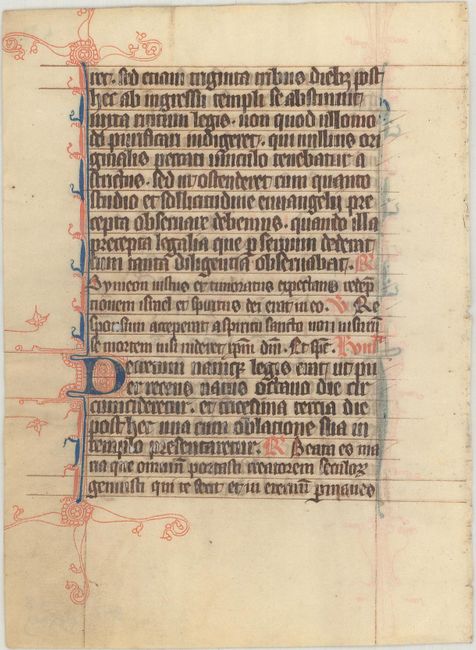 ret. sed etiam triginta tribus diebꝫ post
hec ab ingressu templi se abstinuit
iuxta ritum legis. non quod ullomo
do purificari indigeret. qui nullius ori
ginalis peccati uinculo tenebatur a
strictus. sed ut ostenderet cum quanto
studio et sollicitudine euuangelii pre
cepta obseruare debemus. quando illa
precepta legalia que ꝑ seipsum dederat
cum tanta diligentia obseruabat. R
Symeon iustus et timoratus expectans redēp
tionem israel et spiritus dei erat in eo. V Re
sponsum acceperat a spiritu sancto non uisurū
se mortem nisi uideret xp̄m dn̄m. Et sp̄c.
Decretum namqꝫ legis erat ut pu
er recens natus octauo die cir
cumcideretur. et tricesima tercia die
post hec una cum oblatione sua in
templo presentaretur. R Beata es ma
ria que omniū portasti creatorem seculoꝝ
genuisti qui te fecit et in eternū ꝑmanes